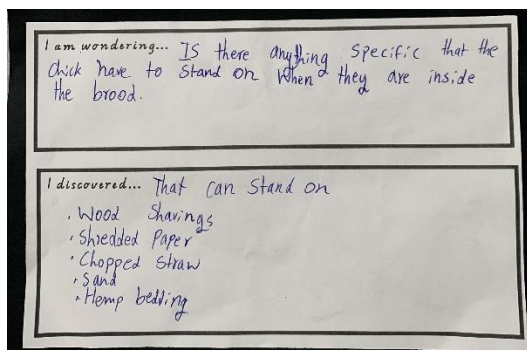 I am wondering... IS there anything specific that the
chick have to stand on when they are inside
the brood.
I discovered... That can stand on
• Wood Shavings
• Shredded Paper
• Chopped Straw
• Sand
• Hemp bedding